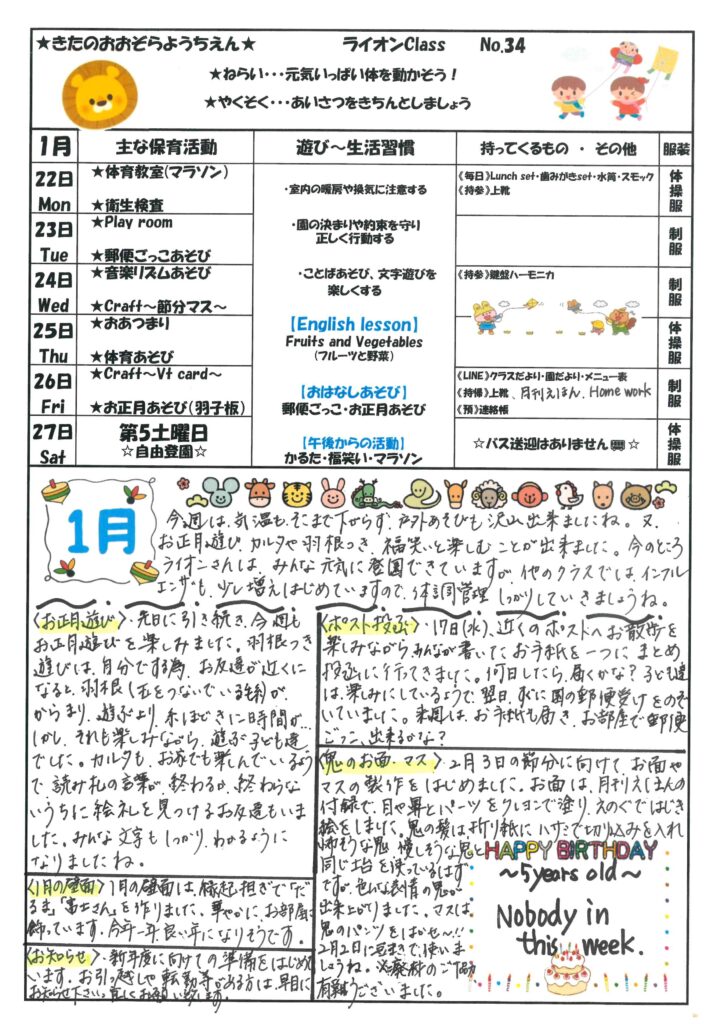 ★きたのおおぞらようちえん★ ライオンClass No.34
★ねらい・・・元気いっぱい体を動かそう！
★やくそく・・・あいさつをきちんとしましょう
1月 主な保育活動 遊び～生活習慣 持ってくるもの ・ その他 服装
22日 Mon
★体育教室(マラソン)
★衛生検査
23日 Tue
★Play room
★郵便ごっこあそび
24日 Wed
★音楽リズムあそび
★Craft～節分マス～
25日 Thu
★おあつまり
★体育あそび
26日 Fri
★Craft～Vt card～
★お正月あそび(羽子板)
27日 Sat
第5土曜日
☆自由登園☆
・室内の暖房や換気に注意する
・園の決まりや約束を守り
正しく行動する
・ことばあそび、文字遊びを
楽しくする
【English lesson】
Fruits and Vegetables
(フルーツと野菜)
【おはなしあそび】
郵便ごっこ・お正月あそび
【午後からの活動】
かるた・福笑い・マラソン
《毎日》Lunch set・歯みがきset・水筒・スモック
《持参》上靴
《持参》鍵盤ハーモニカ
《LINE》クラスだより・園だより・メニュー表
《持帰》上靴、月刊えほん、Home work
《預》連絡帳
☆バス送迎はありません☆
体操服
制服
制服
体操服
制服
体操服
1月
今週は、気温も、そこまで下がらず、戸外あそびも沢山出来ましたね。又、
お正月遊び、カルタや羽根つき、福笑いと楽しむことが出来ました。今のところ
ライオンさんは、みんな元気に登園できていますが、他のクラスでは、インフル
エンザも、少し増えはじめていますので、体調管理しっかりしていきましょうね。
〈お正月遊び〉・先日に引き続き、今週も
お正月遊びを楽しみました。羽根つき
遊びは、自分でする為、お友達が近くに
なると、羽根(玉をつないでいる紐)が、
からまり、遊ぶより、糸ほどきに時間が…
しかし、それも楽しみながら、遊ぶ子ども達
でした。カルタも、お家でも楽んでいるよう
で、読み札の言葉が、終わるか、終わらな
いうちに絵札を見つけるお友達もいま
した。みんな文字もしっかり、わかるように
なりましたね。
〈1月の壁面〉1月の壁面は、縁起担ぎで「だ
るま」「富士さん」を作りました。華やかに、お部屋に
飾っています。今年一年、良い年になりそうです。
〈お知らせ〉・新年度に向けての準備をはじめて
います。お引っ越しや転勤等がある方は、早目に
お知らせ下さい。宜しくお願い致します。
〈ポスト投函〉・17日(水)、近くのポストへお散歩を
楽しみながら、みんなが書いたお手紙を一つにまとめ
投函に行ってきました。何日したら、届くかな？子ども達
は、楽しみにしているようで、翌日、すぐに園の郵便受けをのぞ
いていました。来週は、お手紙も届き、お部屋で郵便
ごっこ、出来るかな？
〈鬼のお面・マス〉・2月3日の節分に向けて、お面や
マスの製作をはじめました。お面は、月刊えほんの
付録で、目や鼻とパーツをクレヨンで塗り、えのぐではじき
絵をしました。鬼の髪は折り紙にハサミで切り込みを入れ
怖そうな鬼、優しそうな鬼と
同じ土台を使っているはず
ですが、色んな表情の鬼が
出来上がりました。マスは、
鬼のパンツをはいせ～!!
2月2日に豆まきで、使いま
しょうね。※廃材のご協力
有難うございました。
HAPPY BIRTHDAY
～5years old～
Nobody in
this week.